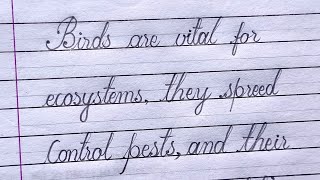 Birds are vital for
ecosystems, they spreed
Control pests, and their